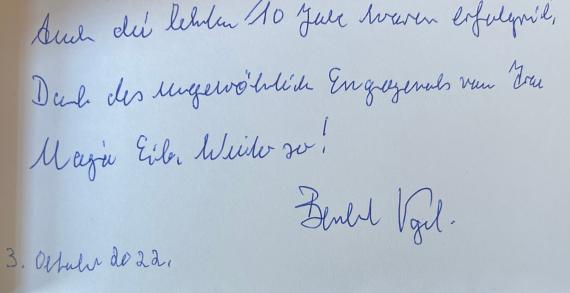 Auch die letzten 10 Jahre waren erfolgreich,
Dank des ungewöhnlich Engagements von Frau
Maria Eib. Weiter so!
Bernhard Vogel.
3. Oktober 2022.